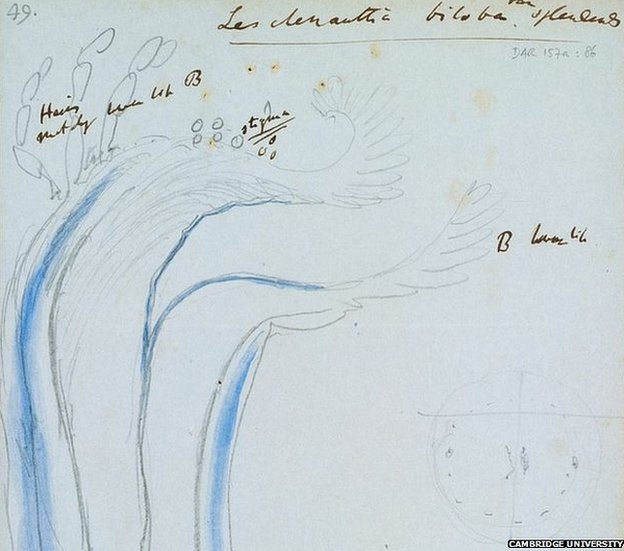 49.
Leschenaultia biloba var splendens
DAR 157a : 86
Hairs
lower lip B
stigma
B lower lip
CAMBRIDGE UNIVERSITY